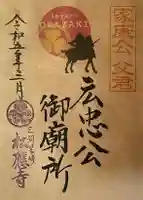 家康公 父君
Ieyasu
OKAZAKI
広忠公
御廟所
令和五年三月
三河岡崎
松應寺